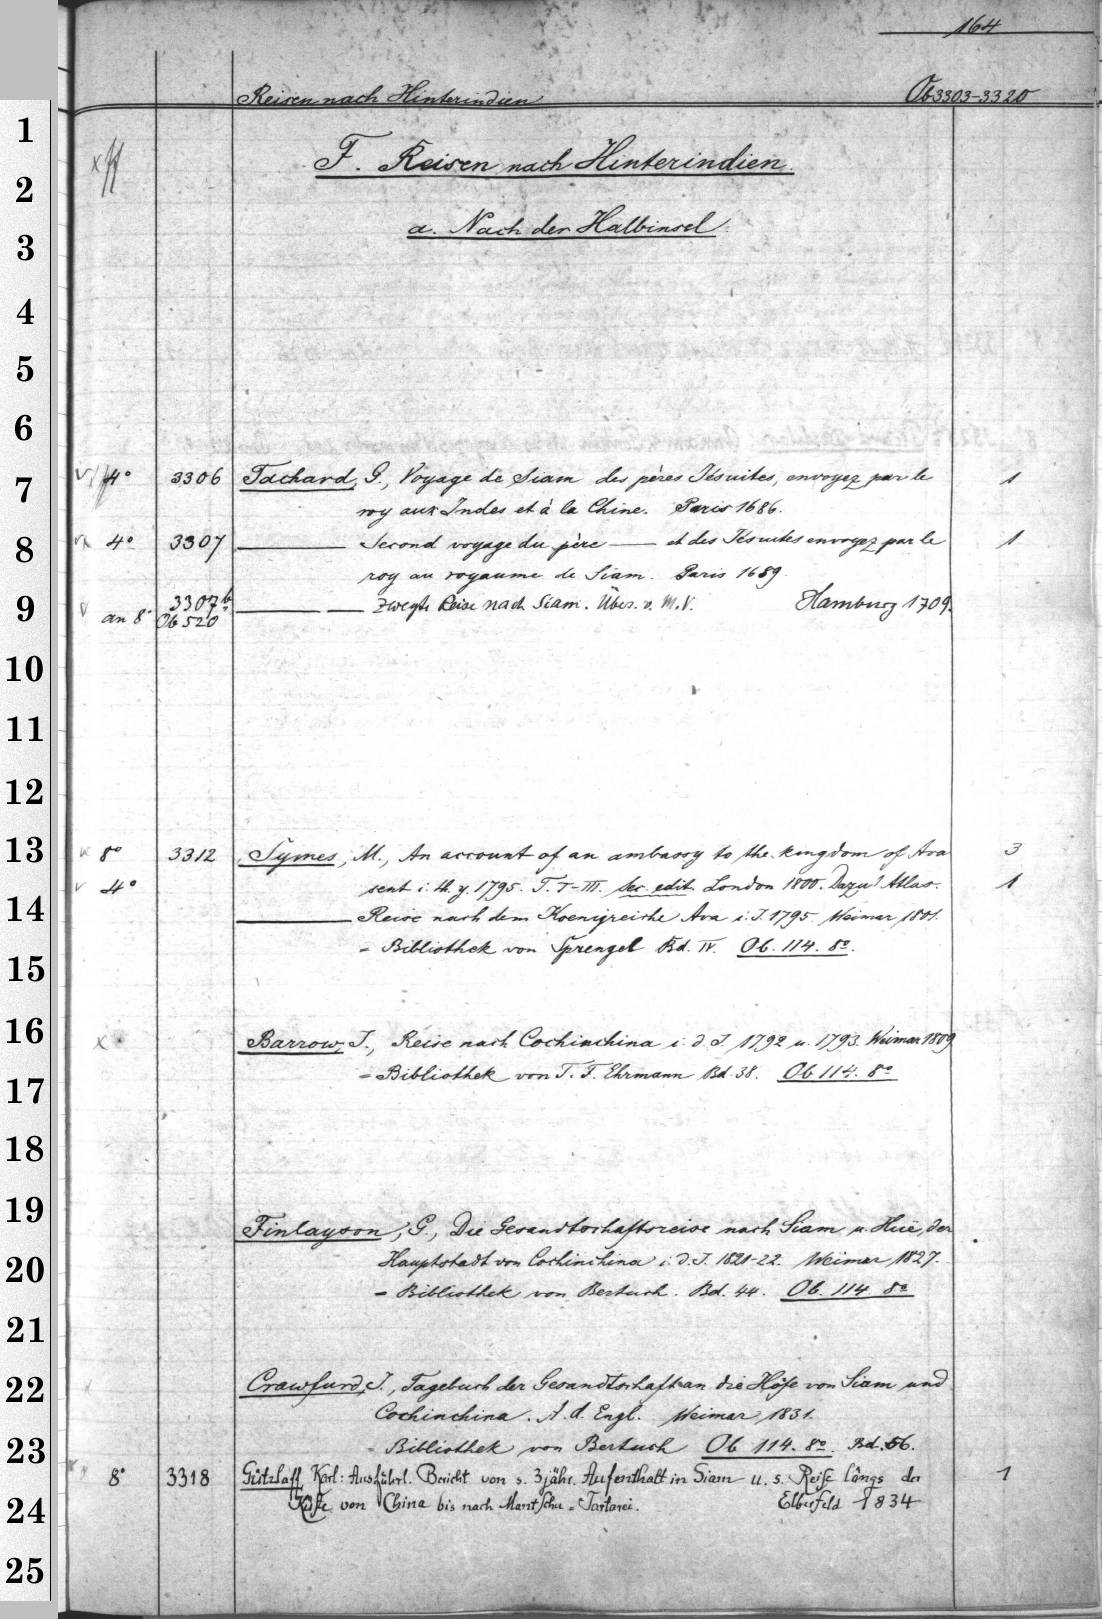 164
Reisen nach Hinterindien Ob 3303-3320
F. Reisen nach Hinterindien.
a. Nach der Halbinsel.
4° 3306 Tachard, G., Voyage de Siam des pères Jésuites, envoyez par le 1
roy aux Indes et à la Chine. Paris 1686.
4° 3307 ——— Second voyage du père —— et des Jésuites envoyez par le 1
roy au royaume de Siam. Paris 1689.
3307b
an 8° Ob 520 ——— — Zweyte Reise nach Siam. Übers. v. M.V. Hamburg 1709.
8° 3312 Symes, M., An account of an ambassy to the kingdom of Ava 3
4° sent i. th. y. 1795. T. I-III. Sec. edit. London 1800. Dazu! Atlas. 1
——— Reise nach dem Koenigreiche Ava i. J. 1795. Weimar 1801.
= Bibliothek von Sprengel Bd. IV. Ob. 114. 8°.
x Barrow, J., Reise nach Cochinchina i. d. J. 1792 u. 1793. Weimar 1809
= Bibliothek von T. F. Ehrmann Bd. 38. Ob 114. 8°
Finlayson, G., Die Gesandtschaftsreise nach Siam u. Hué, der
Hauptstadt von Cochinchina i. d. J. 1821-22. Weimar 1827.
= Bibliothek von Bertuch. Bd. 44. Ob. 114. 8°
Crawfurd, J., Tagebuch der Gesandtschaft an die Höfe von Siam und
Cochinchina. A. d. Engl. Weimar 1831.
= Bibliothek von Bertuch Ob 114. 8°. Bd. 56.
8° 3318 Gützlaff, Karl: Ausführl. Bericht von s. 3jähr. Aufenthalt in Siam u. s. Reise längs der 1
Küste von China bis nach Mantschu-Tartarei. Elberfeld 1834
1
2
3
4
5
6
7
8
9
10
11
12
13
14
15
16
17
18
19
20
21
22
23
24
25